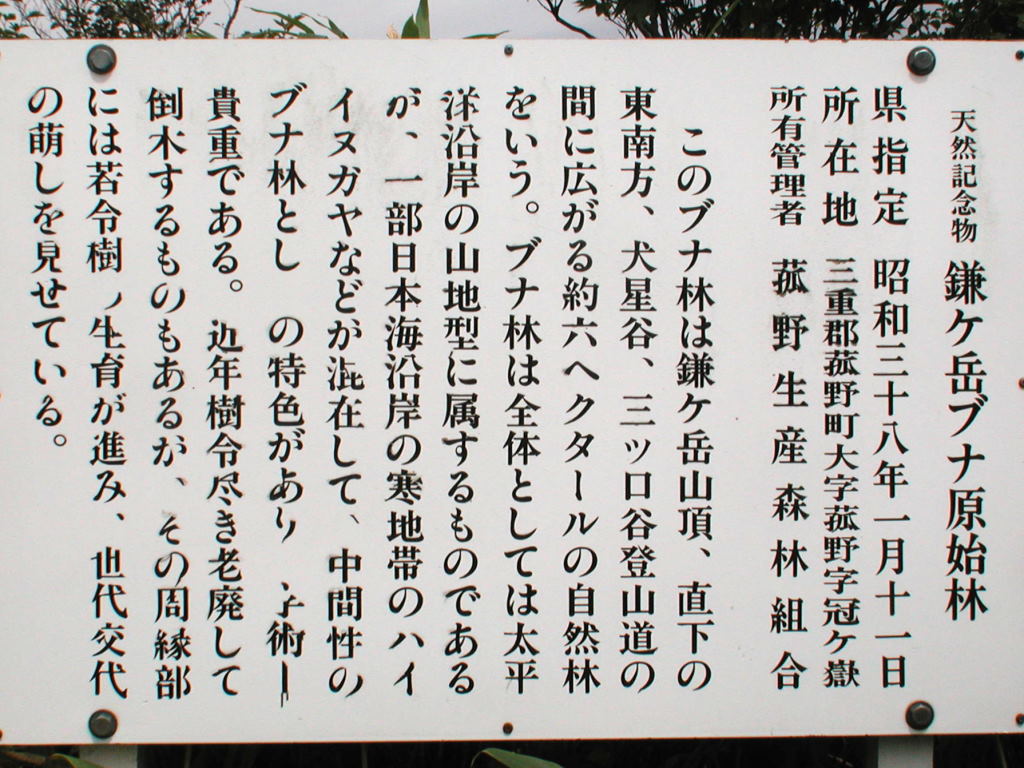 天然記念物 鎌ケ岳ブナ原始林
県指定 昭和三十八年一月十一日
所在地 三重郡菰野町大字菰野字冠ケ嶽
所有管理者 菰野生産森林組合
このブナ林は鎌ケ岳山頂、直下の
東南方、犬星谷、三ツ口谷登山道の
間に広がる約六ヘクタールの自然林
をいう。ブナ林は全体としては太平
洋沿岸の山地型に属するものである
が、一部日本海沿岸の寒地帯のハイ
イヌガヤなどが混在して、中間性の
ブナ林とし の特色があり 術
貴重である。近年樹令尽き老廃して
倒木するものもあるが、その周縁部
には若令樹ノ生育が進み、世代交代
の萌しを見せている。